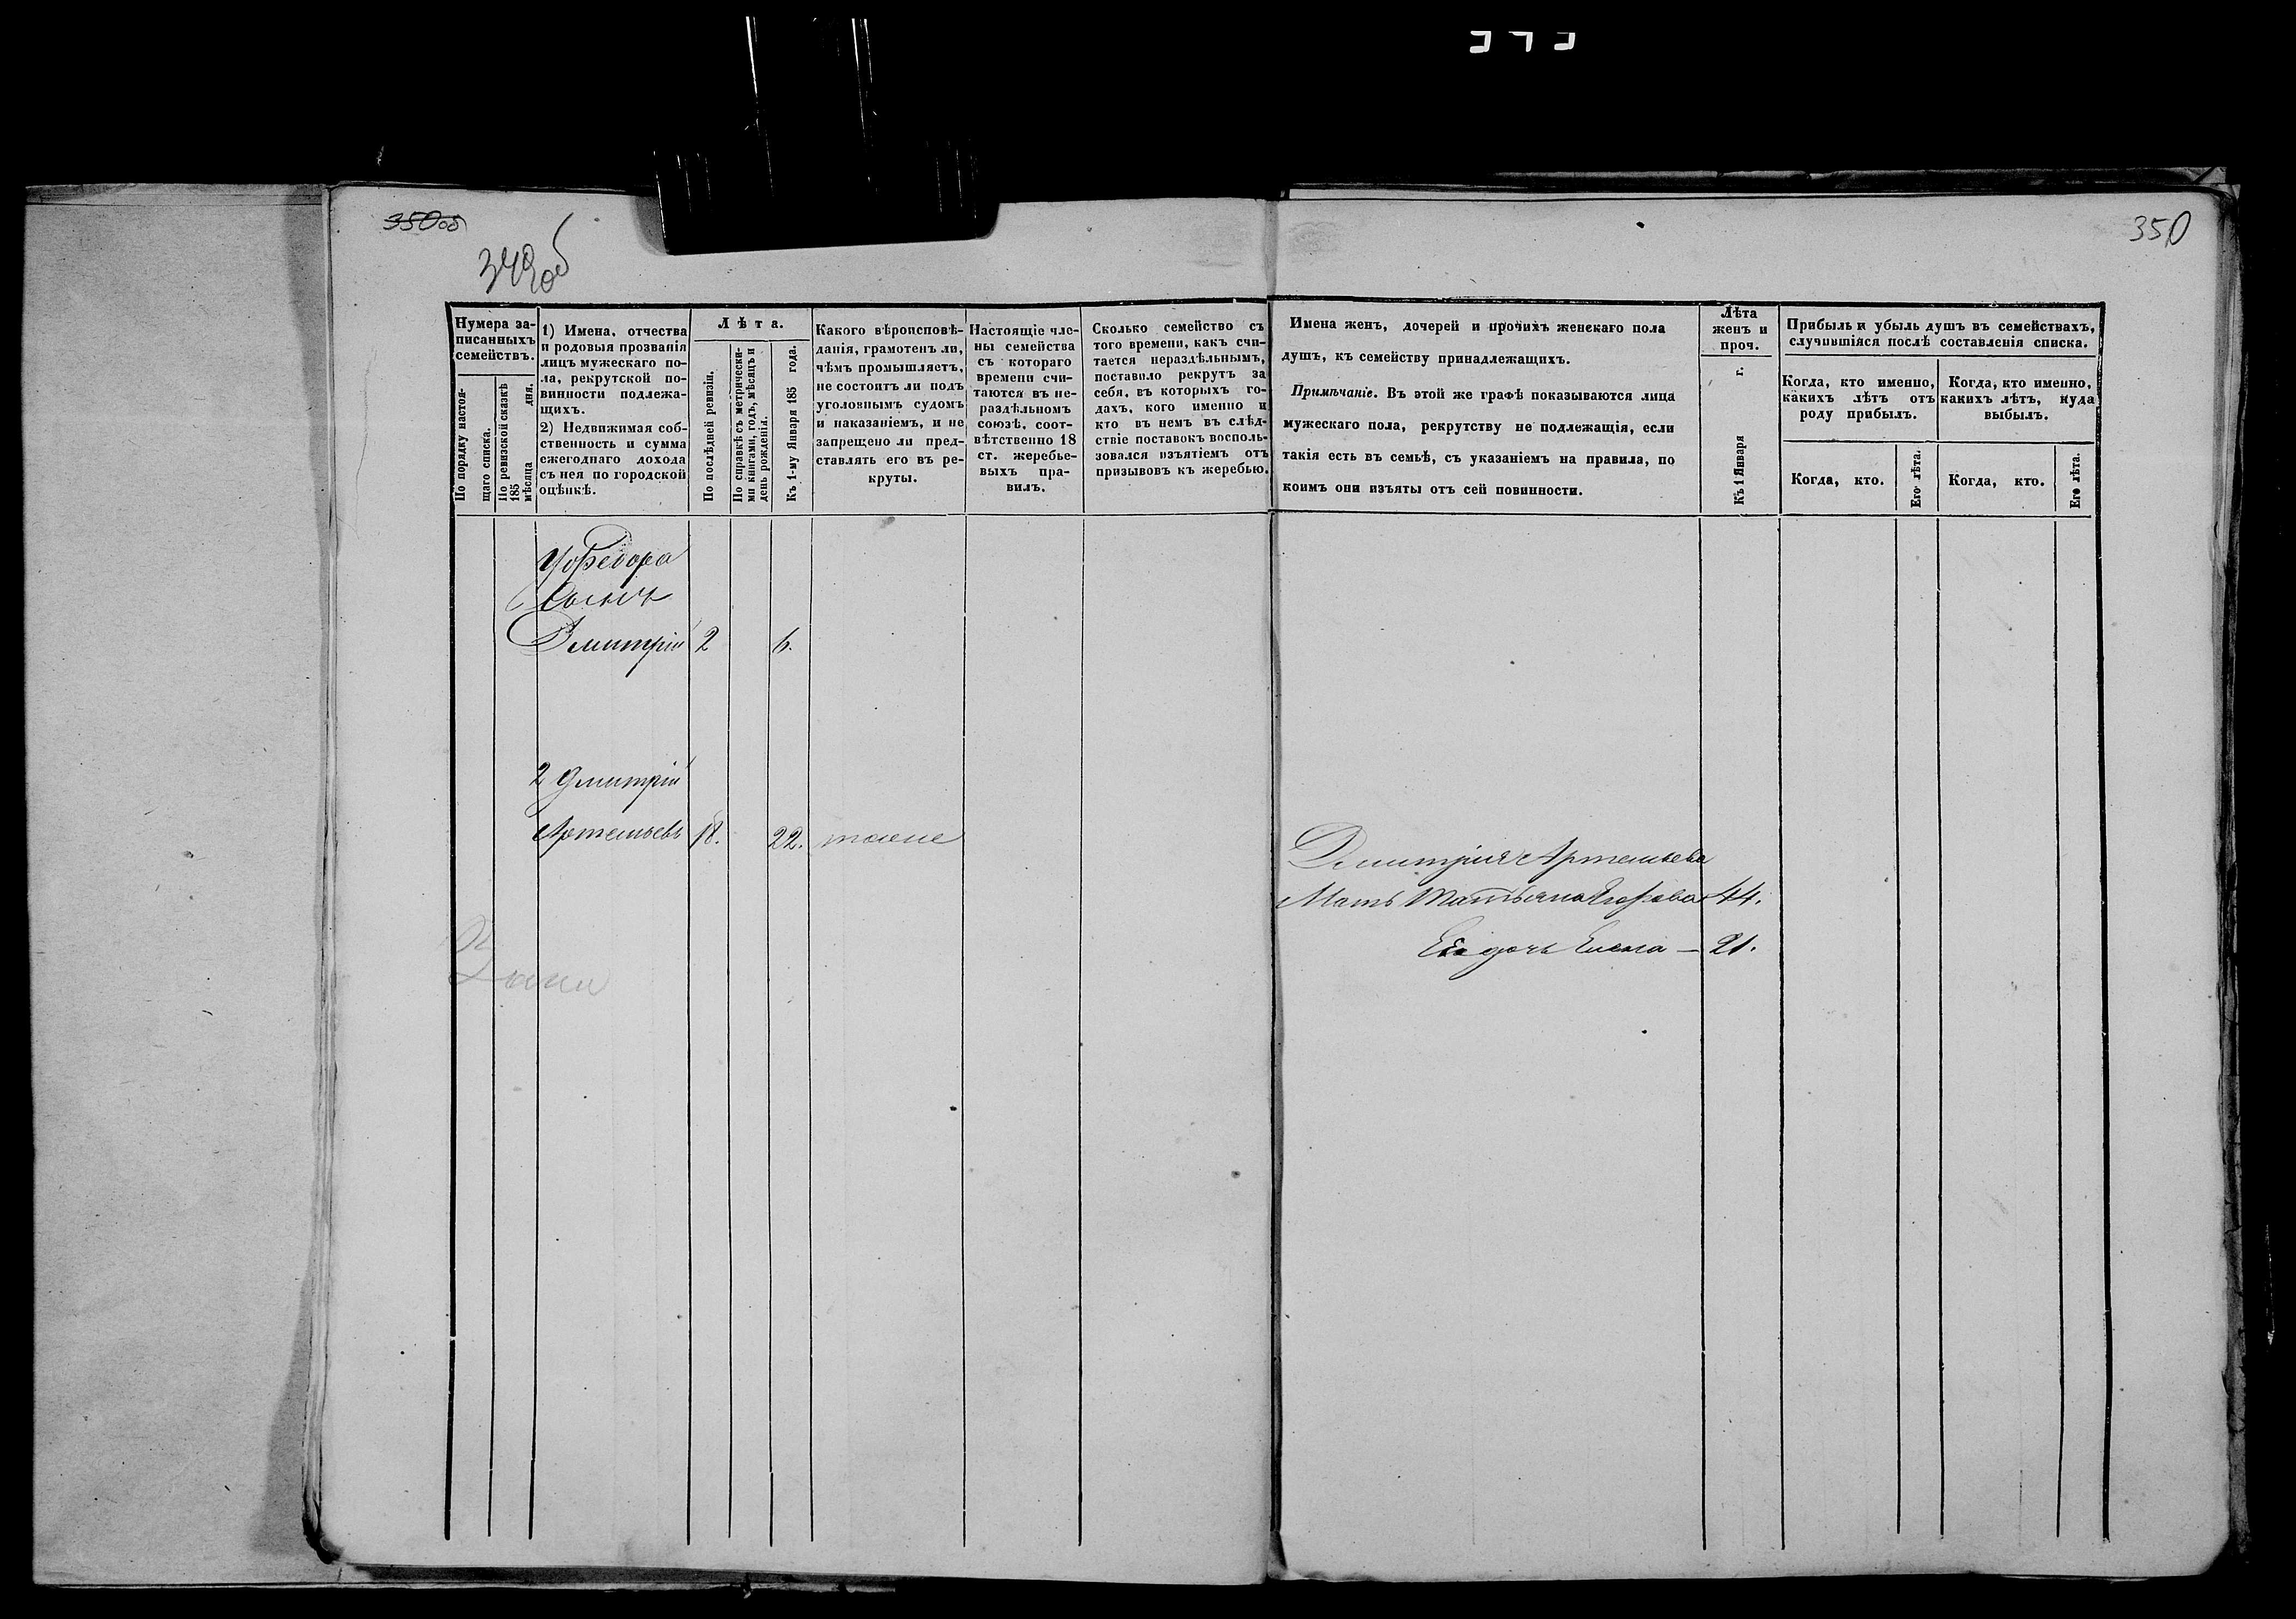 350 об
349 об
350
Нумера за-
писанныхъ
семействъ.
По порядку настоя-
щаго списка.
По ревизской сказкѣ
185
мѣсяца дня.
1) Имена, отчества
и родовыя прозванія
лицъ мужескаго по-
ла, рекрутской по-
винности подлежа-
щихъ.
2) Недвижимая соб-
ственность и сумма
ежегоднаго дохода
съ нея по городской
оцѣнкѣ.
Лѣта.
По послѣдней ревизіи.
По справкѣ съ метрически-
ми книгами, годъ, мѣсяцъ и
день рожденія.
Къ 1-му Января 185 года.
Какого вѣроисповѣ-
данія, грамотенъ ли,
чѣмъ промышляетъ,
не состоитъ ли подъ
уголовнымъ судомъ
и наказаніемъ, и не
запрещено ли пред-
ставлять его въ ре-
круты.
Настоящіе чле-
ны семейства
съ котораго
времени счи-
таются въ не-
раздѣльномъ
союзѣ, соот-
вѣтственно 18
ст. жеребье-
выхъ пра-
вилъ.
Сколько семейство съ
того времени, какъ счи-
тается нераздѣльнымъ,
поставило рекрутъ за
себя, въ которыхъ го-
дахъ, кого именно и
кто въ немъ въ слѣд-
ствіе поставокъ восполь-
зовался изъятіемъ отъ
призывовъ къ жеребью.
Имена женъ, дочерей и прочихъ женскаго пола
душъ, къ семейству принадлежащихъ.
Примѣчаніе. Въ этой же графѣ показываются лица
мужескаго пола, рекрутству не подлежащія, если
такія есть въ семьѣ, съ указаніемъ на правила, по
коимъ они изъяты отъ сей повинности.
Лѣта
женъ и
проч.
Къ 1 Января г.
Прибыль и убыль душъ въ семействахъ,
случившійся послѣ составленія списка.
Когда, кто именно,
какихъ лѣтъ отъ
роду прибылъ.
Когда, кто именно,
какихъ лѣтъ, куда
выбылъ.
Когда, кто.
Его лѣта.
Когда, кто.
Его лѣта.
У Федора
Сынъ
Дмитрій 2 6.
2 Дмитрій
Артемьевъ 18. 22. тоже
Дмитрія Артемьева
Мать Татьяна Егорова 44.
Ея дочь Елена — 21.